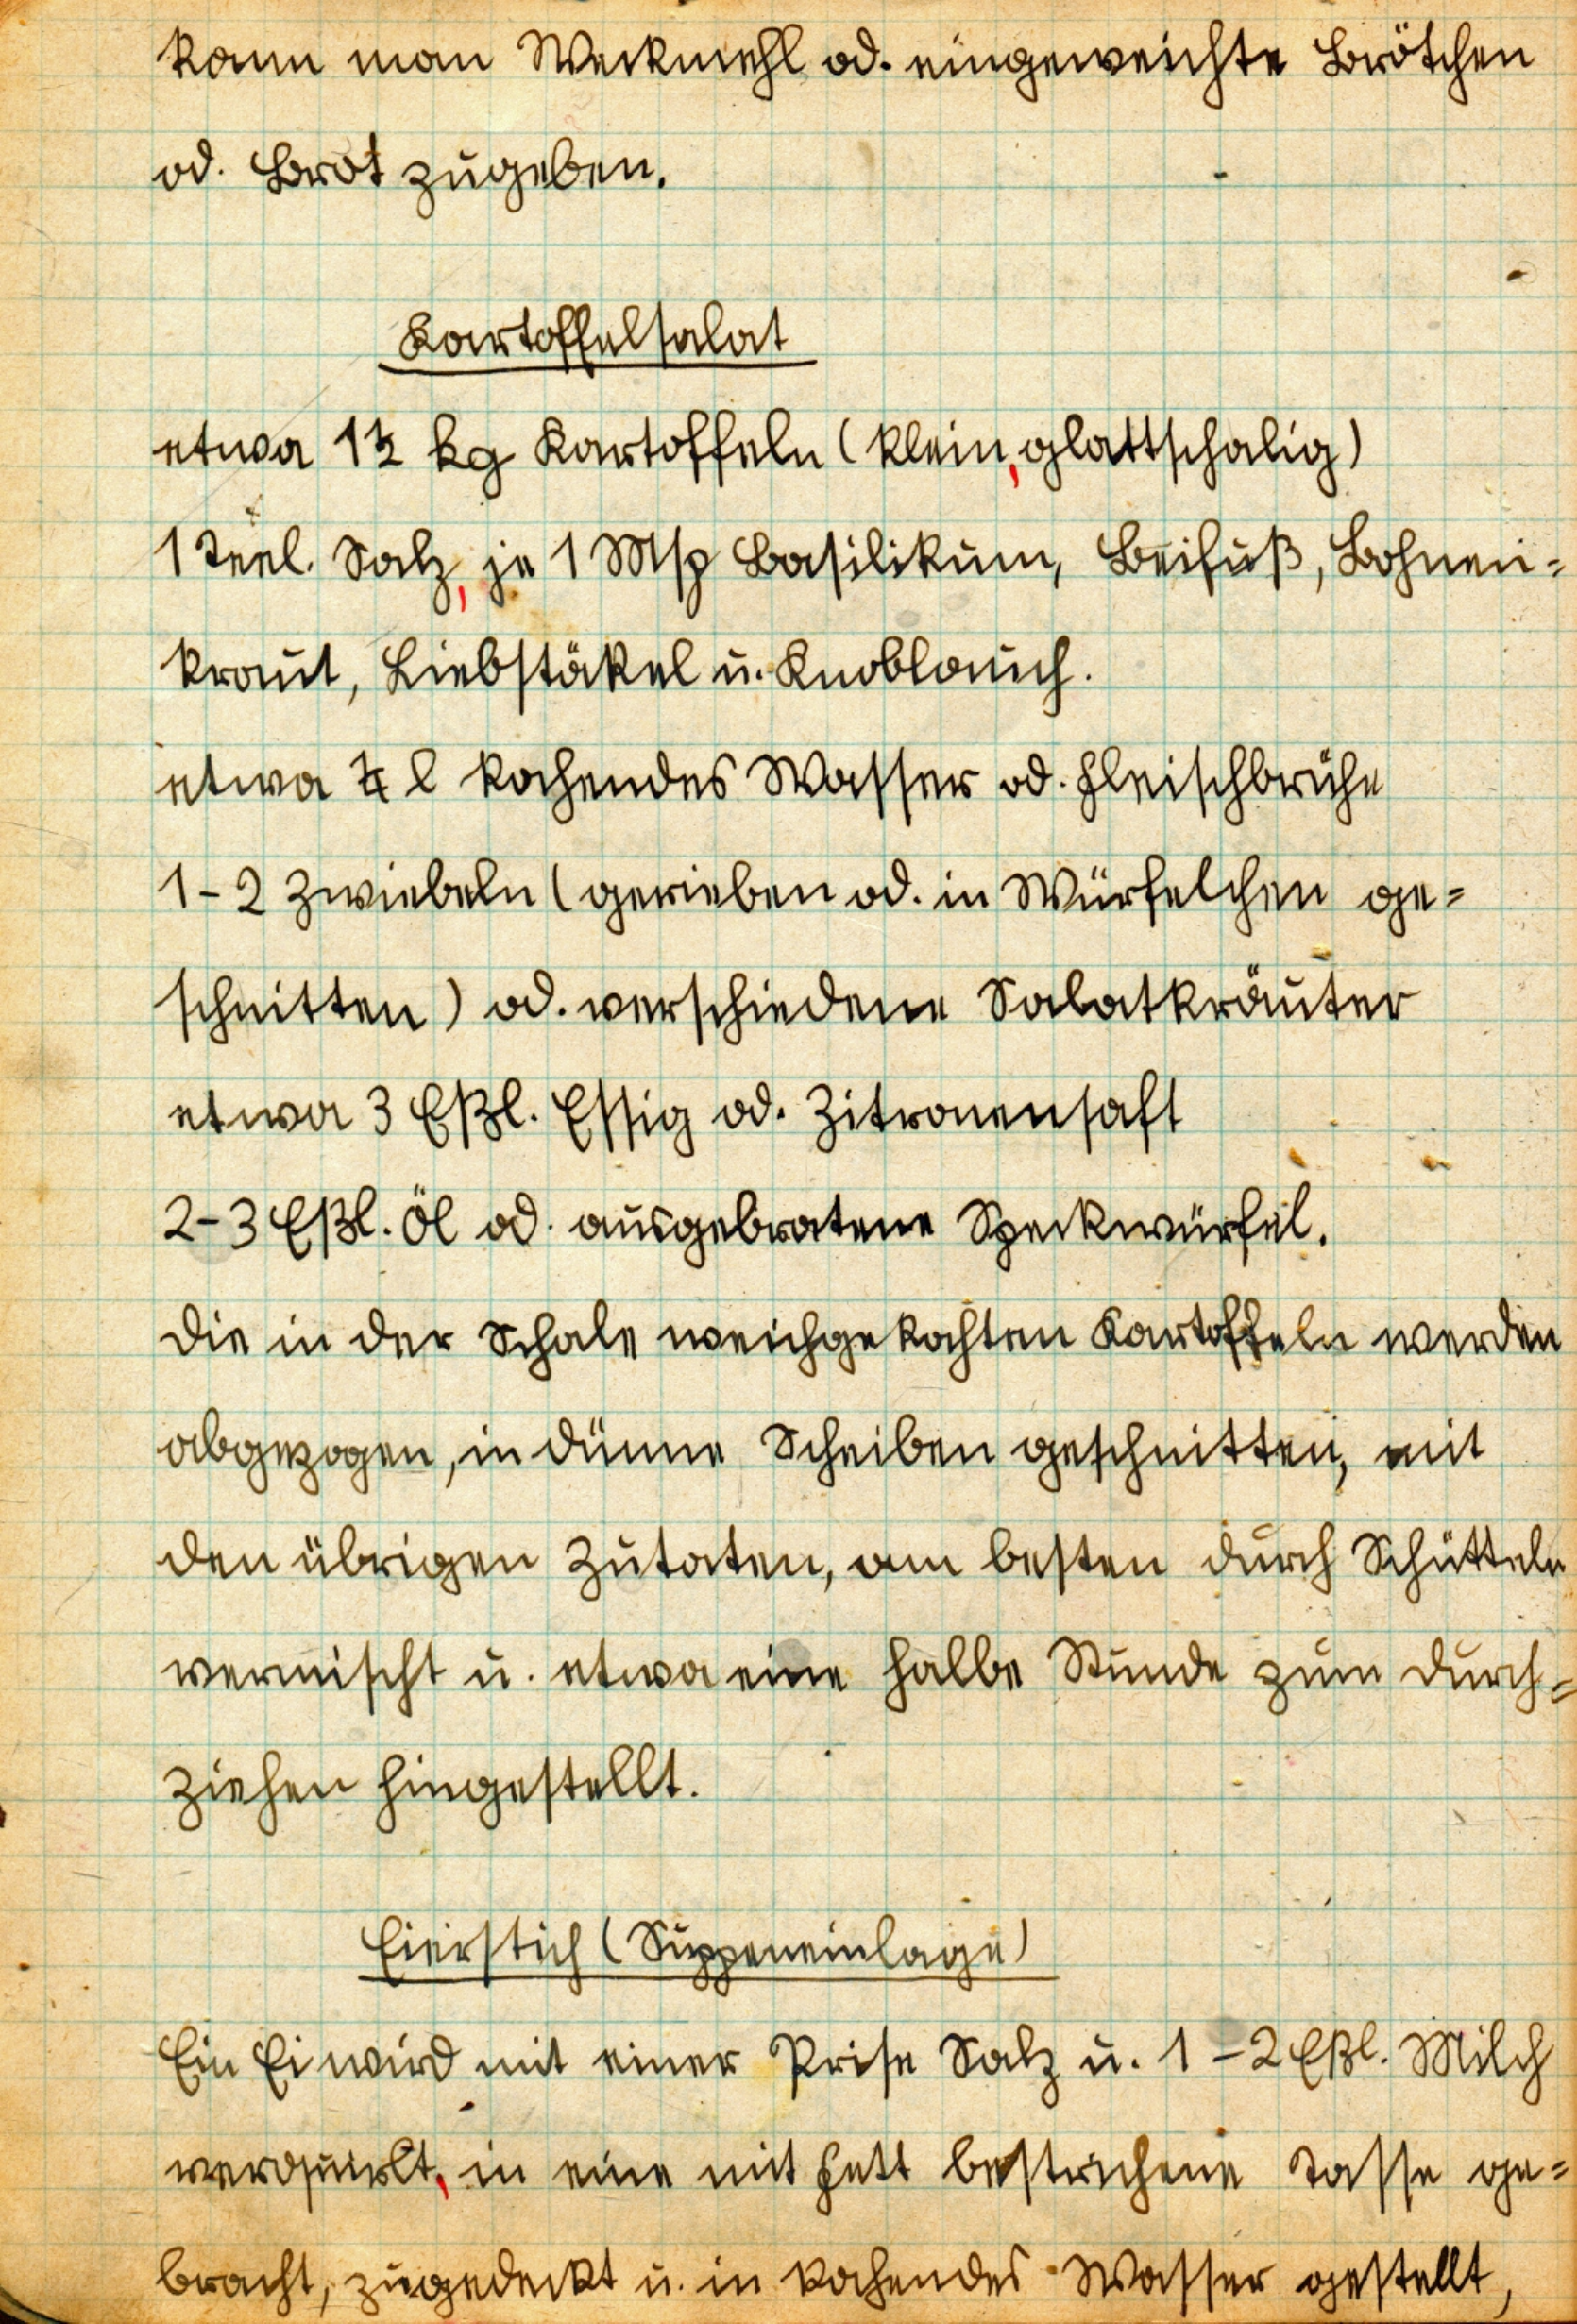 kann man Weckmehl od. eingeweichte Brötchen
od. Brot zugeben.
Kartoffelsalat
etwa 1½ kg Kartoffeln (klein, glattschalig)
1 Teel. Salz, je 1 Msp Basilikum, Beifuß, Bohnen=
kraut, Liebstökel u. Knoblauch.
etwa ¼ l kochendes Wasser od. Fleischbrühe
1-2 Zwiebeln (gerieben od. in Würfelchen ge=
schnitten) od. verschiedene Salatkräuter
etwa 3 Eßl. Essig od. Zitronensaft
2-3 Eßl. Öl od. ausgebratene Speckwürfel.
Die in der Schale weichgekochten Kartoffeln werden
abgezogen, in dünne Scheiben geschnitten, mit
den übrigen Zutaten, am besten durch Schütteln
vermischt u. etwa eine halbe Stunde zum Durch=
ziehen hingestellt.
Eierstich (Suppeneinlage)
Ein Ei wird mit einer Prise Salz u. 1-2 Eßl. Milch
verquirlt, in eine mit Fett bestrichene Tasse ge=
bracht, zugedeckt u. in kochendes Wasser gestellt,